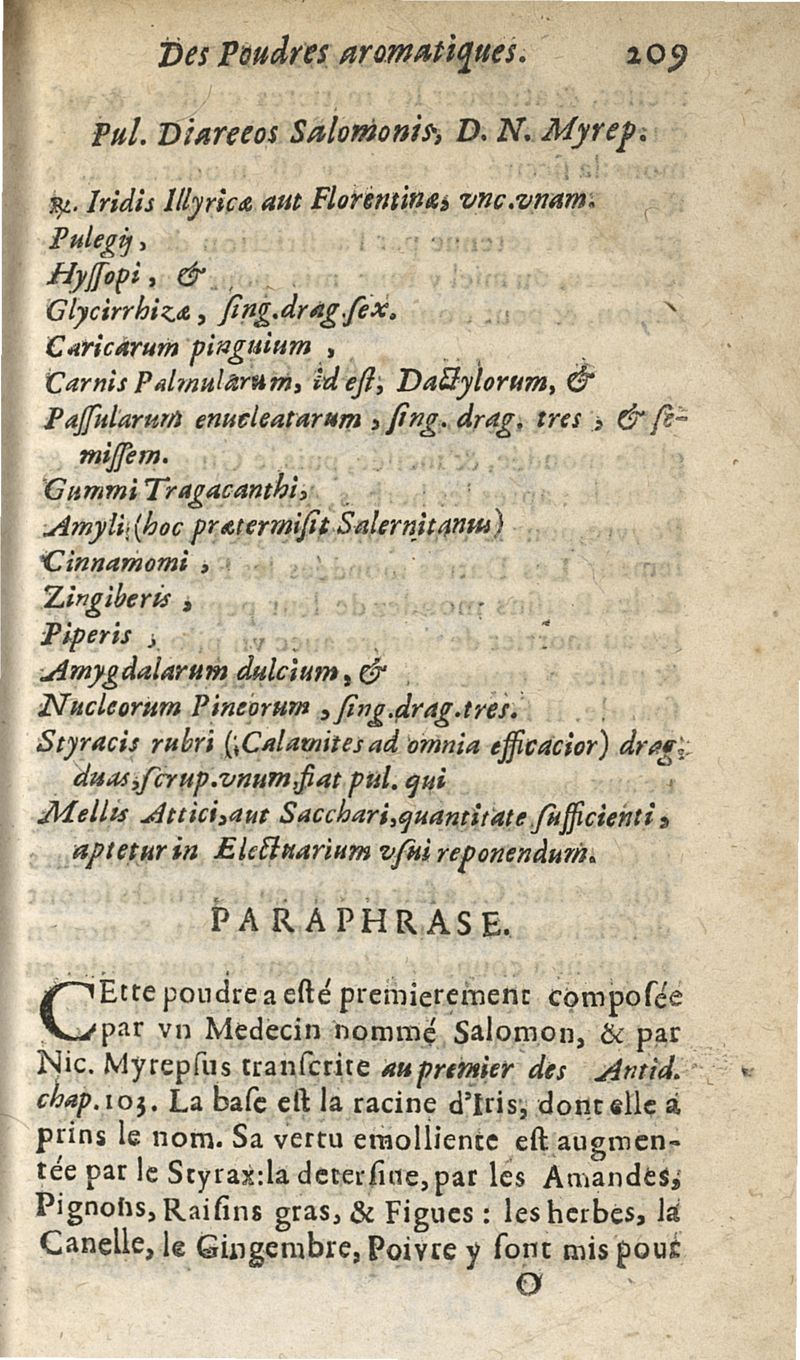 Des Poudres aromatiques. 209
Pul. Diareeos Salomonis, D. N. Myrep.
℞. Iridis Illyricæ aut Florentinæ, vnc.vnam.
Pulegij,
Hyſſopi, &
Glycirrhizæ, ſing.drag.ſex.
Caricarum pinguium,
Carnis Palmularum, id eſt, Dactylorum, &
Paſſularum enucleatarum, ſing. drag. tres, & ſe-
miſſem.
Gummi Tragacanthi,
Amyli (hoc prætermiſit Salernitanus)
Cinnamomi,
Zingiberis,
Piperis,
Amygdalarum dulcium, &
Nucleorum Pineorum, ſing.drag.tres.
Styracis rubri (Calamites ad omnia efficacior) drag.
duas, ſcrup.vnum, fiat pul. qui
Mellis Attici, aut Sacchari, quantitate ſufficienti,
aptetur in Electuarium vſui reponendum.
PARAPHRASE.
CEtte poudre a eſté premierement compoſée
par vn Medecin nommé Salomon, & par
Nic. Myrepſus tranſcrite au premier des Antid.
chap.103. La baſe eſt la racine d'Iris, dont elle a
prins le nom. Sa vertu emolliente eſt augmen-
tée par le Styrax: la deterſiue, par les Amandes,
Pignons, Raiſins gras, & Figues : les herbes, la
Canelle, le Gingembre, Poivre y ſont mis pour
O